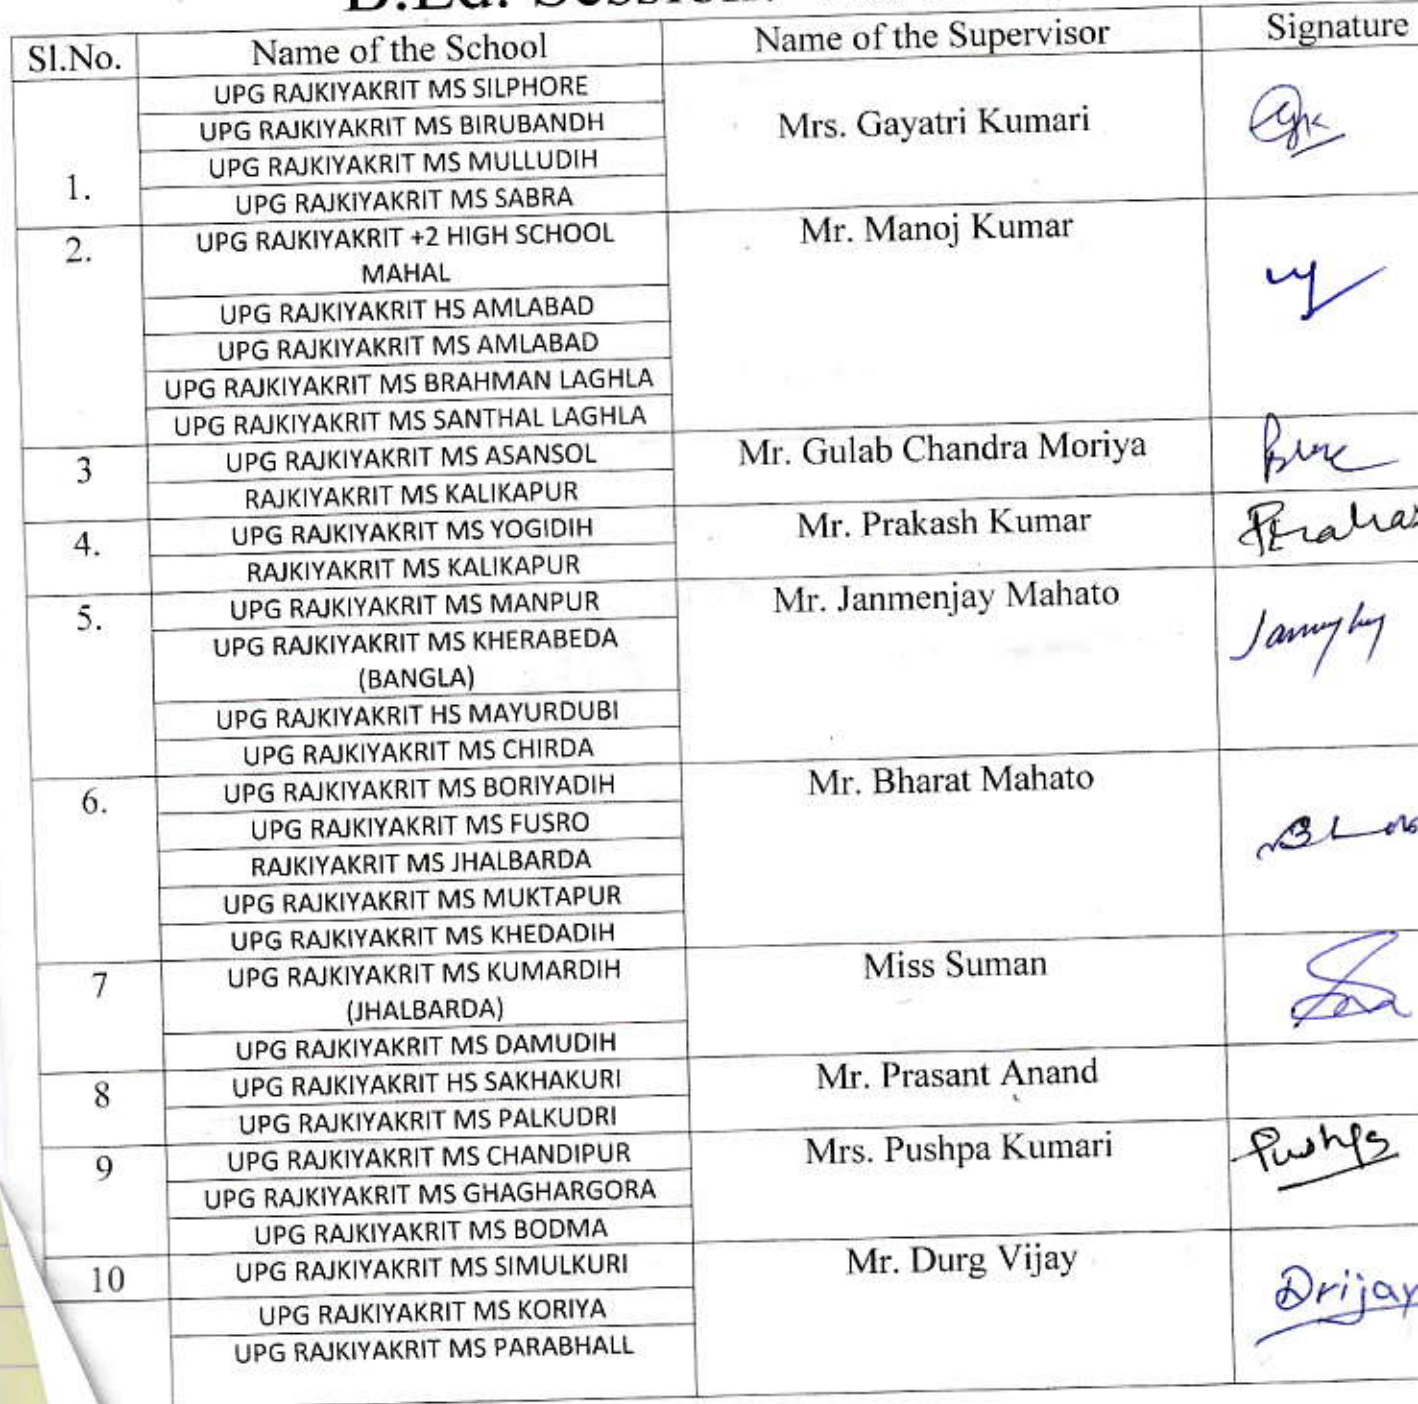 B.Ed. Session:
Sl.No. Name of the School Name of the Supervisor Signature
UPG RAJKIYAKRIT MS SILPHORE
UPG RAJKIYAKRIT MS BIRUBANDH Mrs. Gayatri Kumari
UPG RAJKIYAKRIT MS MULLUDIH
1. UPG RAJKIYAKRIT MS SABRA
2. UPG RAJKIYAKRIT +2 HIGH SCHOOL Mr. Manoj Kumar
MAHAL
UPG RAJKIYAKRIT HS AMLABAD
UPG RAJKIYAKRIT MS AMLABAD
UPG RAJKIYAKRIT MS BRAHMAN LAGHLA
UPG RAJKIYAKRIT MS SANTHAL LAGHLA
3 UPG RAJKIYAKRIT MS ASANSOL Mr. Gulab Chandra Moriya
RAJKIYAKRIT MS KALIKAPUR
4. UPG RAJKIYAKRIT MS YOGIDIH Mr. Prakash Kumar
RAJKIYAKRIT MS KALIKAPUR
5. UPG RAJKIYAKRIT MS MANPUR Mr. Janmenjay Mahato
UPG RAJKIYAKRIT MS KHERABEDA
(BANGLA)
UPG RAJKIYAKRIT HS MAYURDUBI
UPG RAJKIYAKRIT MS CHIRDA
6. UPG RAJKIYAKRIT MS BORIYADIH Mr. Bharat Mahato
UPG RAJKIYAKRIT MS FUSRO
RAJKIYAKRIT MS JHALBARDA
UPG RAJKIYAKRIT MS MUKTAPUR
UPG RAJKIYAKRIT MS KHEDADIH
7 UPG RAJKIYAKRIT MS KUMARDIH Miss Suman
(JHALBARDA)
UPG RAJKIYAKRIT MS DAMUDIH
8 UPG RAJKIYAKRIT HS SAKHAKURI Mr. Prasant Anand
UPG RAJKIYAKRIT MS PALKUDRI
9 UPG RAJKIYAKRIT MS CHANDIPUR Mrs. Pushpa Kumari Pushpa
UPG RAJKIYAKRIT MS GHAGHARGORA
UPG RAJKIYAKRIT MS BODMA
10 UPG RAJKIYAKRIT MS SIMULKURI Mr. Durg Vijay Drijay
UPG RAJKIYAKRIT MS KORIYA
UPG RAJKIYAKRIT MS PARABHALL